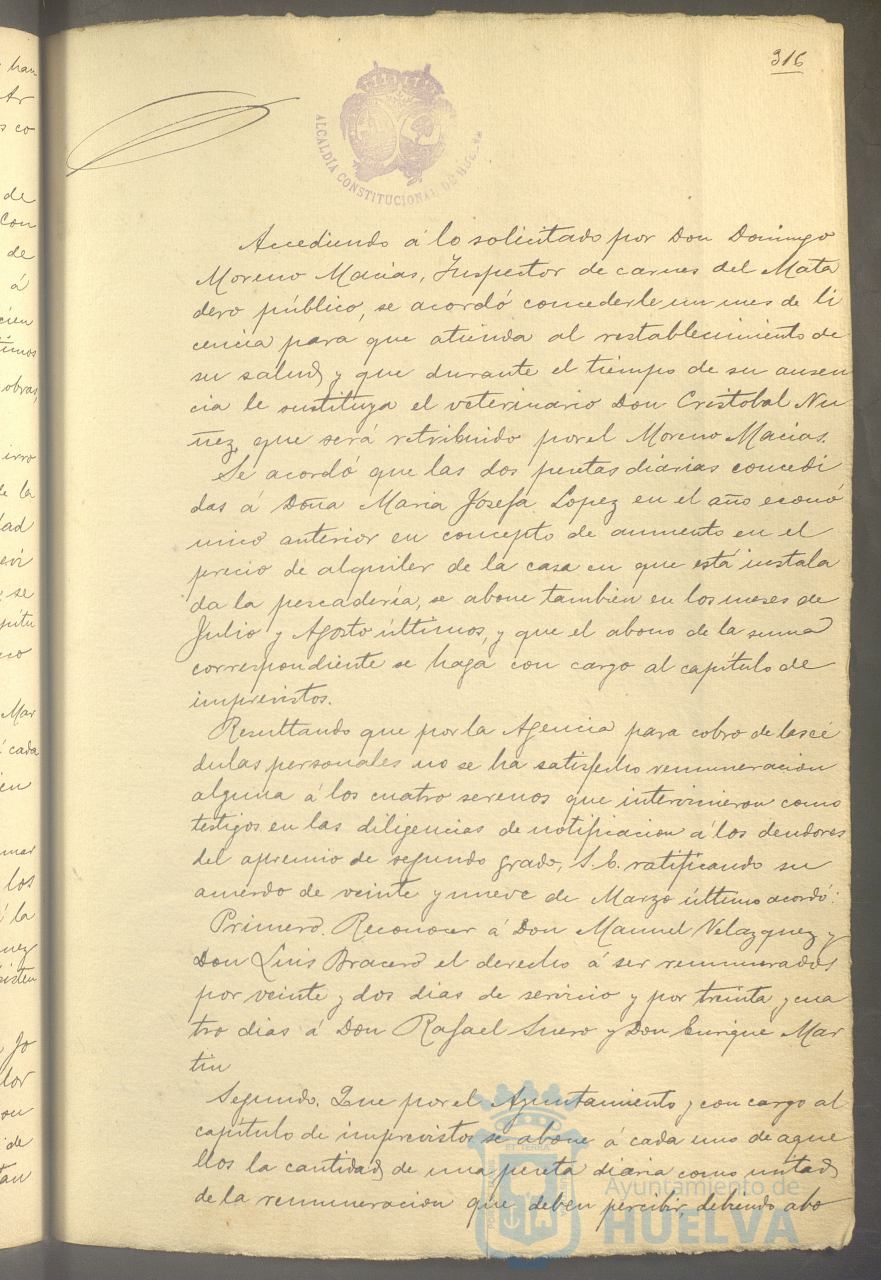 316
ALCALDÍA CONSTITUCIONAL DE HUELVA
Accediendo á lo solicitado por Don Domingo
Moreno Macias, Inspector de carnes del Mata
dero público, se acordó concederle un mes de li
cencia para que atienda al restablecimiento de
su salud y que durante el tiempo de su ausen
cia le sustituya el veterinario Don Cristobal Nu
ñez, que será retribuido por el Moreno Macias.
Se acordó que las dos pesetas diarias concedi
das á Doña Maria Josefa Lopez en el año econó
mico anterior en concepto de aumento en el
precio de alquiler de la casa en que está instala
da la pescadería, se abone tambien en los meses de
Julio y Agosto últimos, y que el abono de la suma
correspondiente se haga con cargo al capítulo de
imprevistos.
Resultando que por la Agencia para cobro de las cé
dulas personales no se ha satisfecho remuneracion
alguna á los cuatro serenos que intervinieron como
testigos en las diligencias de notificacion á los deudores
del apremio de segundo grado, S. E. ratificando su
acuerdo de veinte y nueve de Marzo último acordó:
Primero. Reconocer á Don Manuel Velazquez y
Don Luis Bracero el derecho á ser remunerados
por veinte y dos dias de servicio y por treinta y cua
tro dias á Don Rafael Suero y Don Enrique Mar
tin
Segundo. Que por el Ayuntamiento y con cargo al
capítulo de imprevistos se abone á cada uno de aque
llos la cantidad de una peseta diaria como mitad
de la remuneracion que deben percibir, debiendo abo
Ayuntamiento de
HUELVA